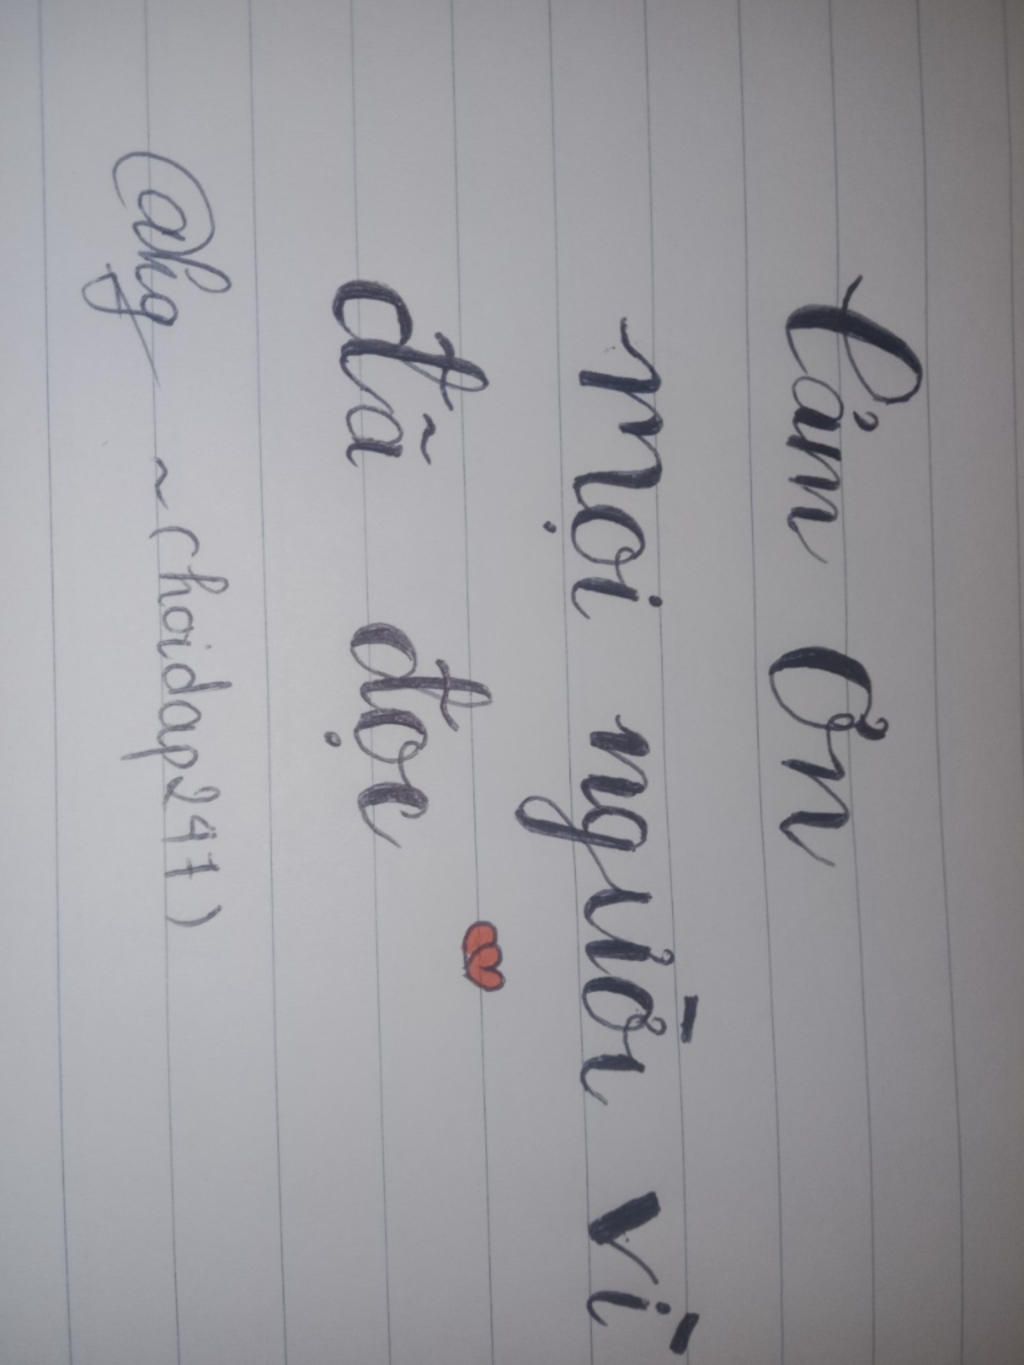 Cảm Ơn
mọi người vì
đã đọc
@hg ~ (hoidap247)